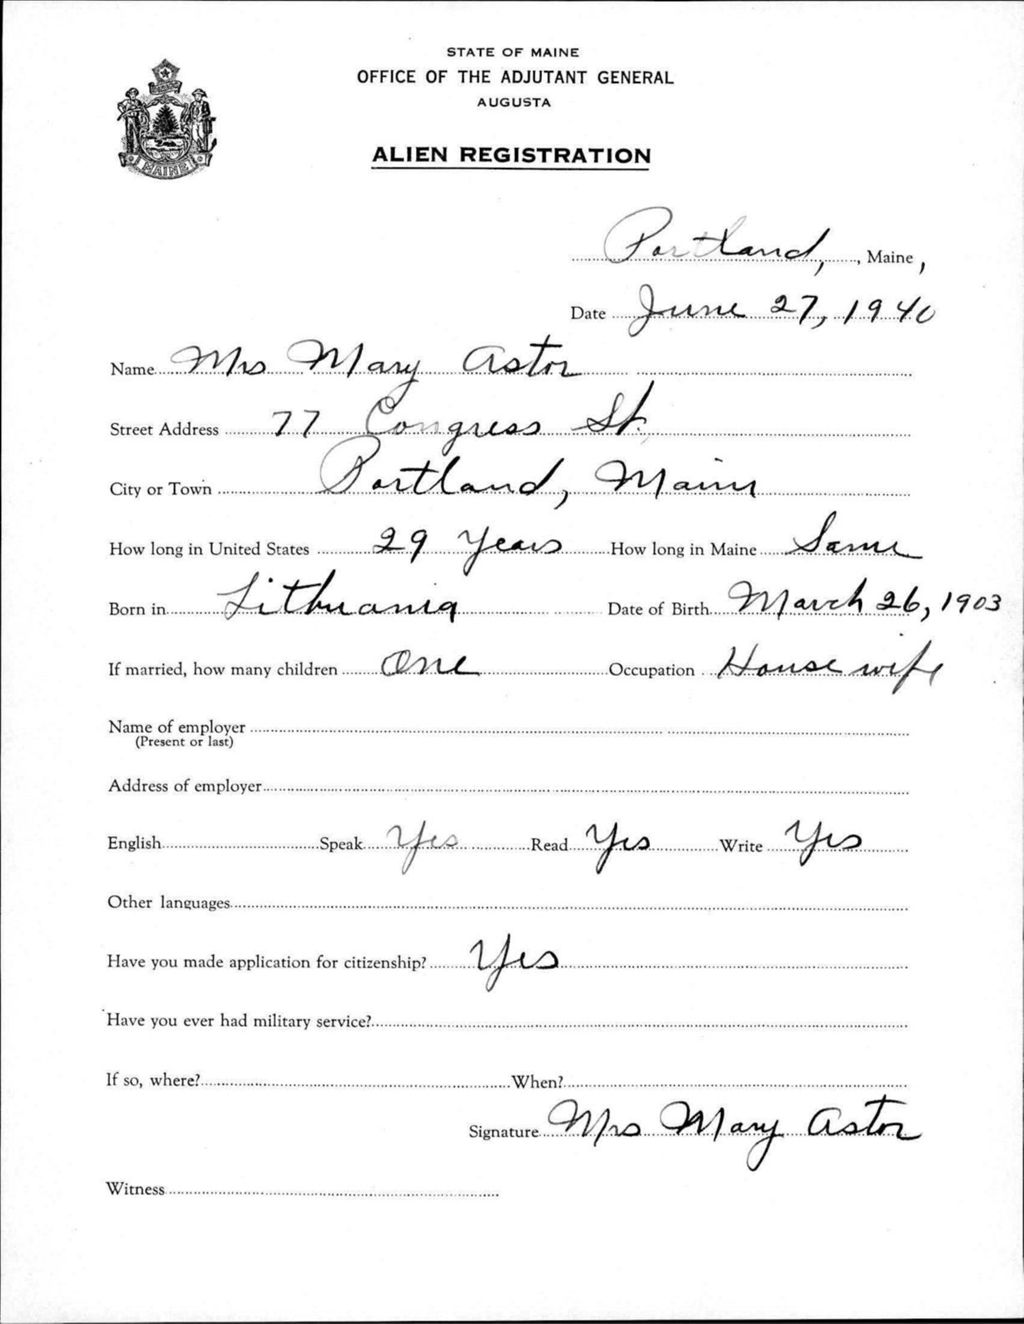 STATE OF MAINE
OFFICE OF THE ADJUTANT GENERAL
AUGUSTA
ALIEN REGISTRATION
MAINE
Portland, , Maine,
Date June 27, 1940
Name Mrs Mary Astor
Street Address 77 Congress St.
City or Town Portland, Maine
How long in United States 29 Years How long in Maine Same
Born in Lithuania Date of Birth March 26, 1903
If married, how many children One Occupation Housewife
Name of employer
(Present or last)
Address of employer
English Speak Yes Read Yes Write Yes
Other languages
Have you made application for citizenship? Yes
Have you ever had military service?
If so, where? When?
Signature Mrs Mary Astor
Witness